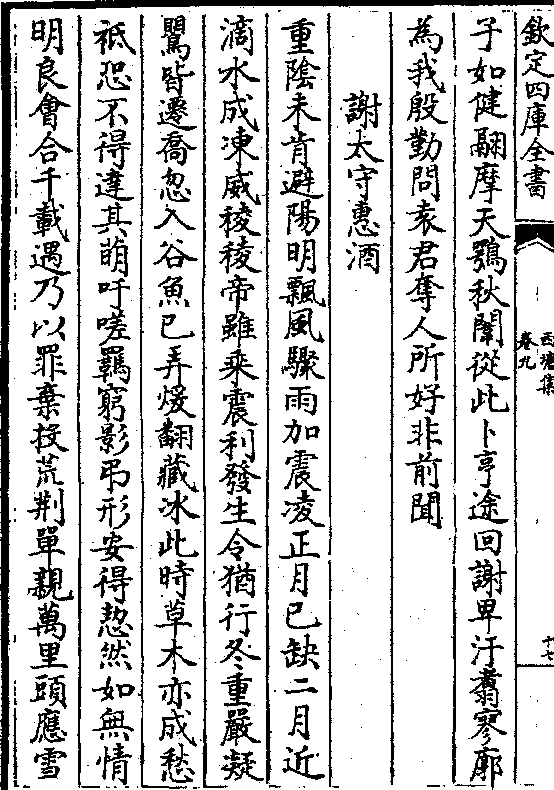 欽定四庫全書
西塘集
卷九
十七
子如健翮摩天鶚秋闈從此卜亨途回謝卑汙翥寥廓
為我殷勤問袁君奪人所好非前聞
謝太守惠酒
重陰未肯避陽明飄風驟雨加震凌正月已缺二月近
滴水成凍威稜稜帝雖乘震利發生令猶行冬重嚴凝
鸎皆遷喬忽入谷魚已弄煖翻藏冰此時草木亦成愁
祗恐不得達其萌吁嗟羈窮影弔形安得恝然如無情
明良會合千載遇乃以罪棄投荒荆單親萬里頭應雪